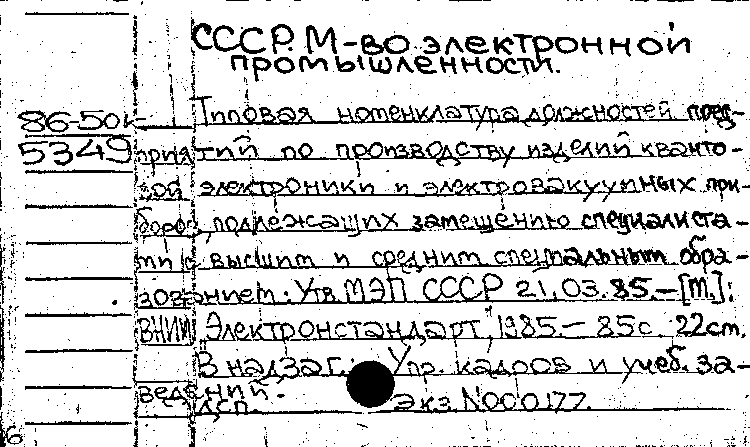 СССР. М-во электронной
промышленности.
86-50к Типовая номенклатура должностей пред-
5349 приятий по производству изделий кванто-
вой электроники и электровакуумных при-
боров, подлежащих замещению специалиста-
ми с высшим и средним специальным обра-
зованием: Утв. МЭП СССР 21.03.85. — [М.]:
ВНИИ „Электронстандарт", 1985. — 85с. 22см.
В надзаг.: Упр. кадров и учеб. за-
ведений.
ДСП. Экз. N000177.
6